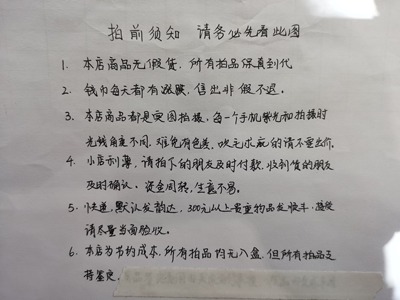 拍前须知 请务必先看此图
1. 本店商品无假货,所有拍品保真到代
2. 钱币每天都有返膜,售出非假不退。
3. 本店商品都是实图拍摄,每一个手机背光和拍摄时
光线角度不同,难免有色差,吹毛求疵的请不要出价。
4. 小店利薄,请拍下的朋友及时付款,收到货的朋友
及时确认。资金周转,生意不易。
5. 快递,默认发韵达,300元以上贵重物品发快车,
请尽量当面验收。
6. 本店为节约成本,所有拍品均无入盒,但所有拍品支
持鉴定。